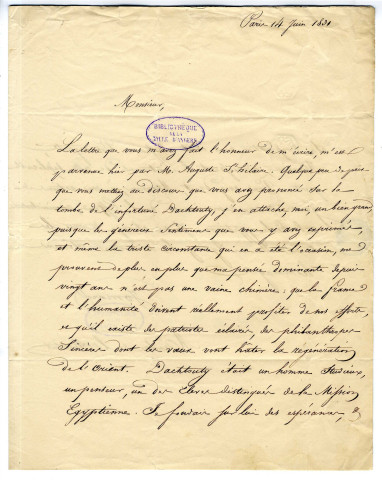 Paris 14 Juin 1831
Monsieur,
BIBLIOTHÈQUE
DE LA
VILLE D'ANGERS
La lettre que vous m'avez fait l'honneur de m'écrire, m'est
parvenue hier par Mr. Auguste St. hilaire. Quelque peu de prix
que vous mettez au discours que vous avez prononcé sur la
tombe de l'infortuné Dachtouty, j'en attache, moi, un bien grand,
puisque les généreux sentimens que vous y avez exprimés
et même la triste circonstance qui en a été l'occasion, me
prouvent de plus en plus que ma pensée dominante depuis
vingt ans n'est pas une vaine chimère; que la france
et l'humanité doivent réellement profiter de nos efforts,
et qu'il existe des patriotes éclairés, des philanthropes
sincères dont les vœux vont hâter la régénération
de l'Orient. Dachtouty était un homme studieux,
un penseur, un des Elèves distingués de la Mission
Egyptienne. Je fondais sur lui des espérances, &